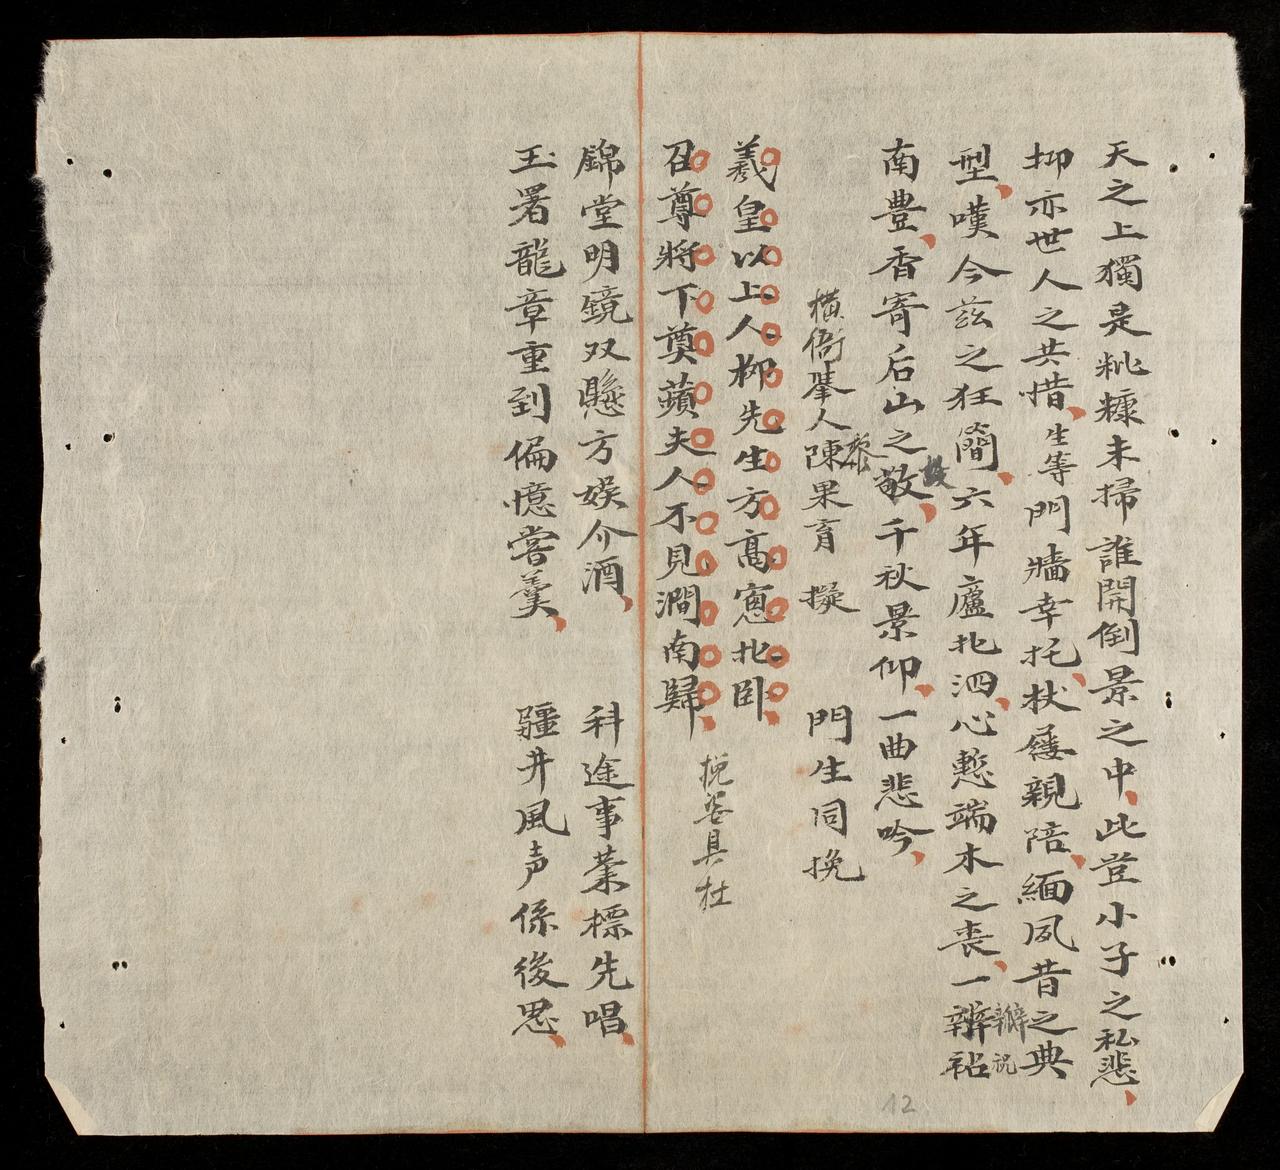 天之上獨是粃糠未掃誰開倒景之中此豈小子之私悲
抑亦世人之共惜生等門牆幸托杖屨親陪緬夙昔之典
型嘆今茲之狂簡六年廬北泗心慙端木之喪一辦祜
瓣祝
南豊香寄后山之敬千秋景仰一曲悲吟
橫衙舉人陳果育擬 門生同挽
黎
羲皇以上人柳先生方高窻北卧
召尊將下奠蘋夫人不見澗南歸
挽
具杜
錦堂明鏡双懸方娛介酒 科途事業標先唱
玉署龍章重到偏憶嘗羹 疆井風声係後思
12